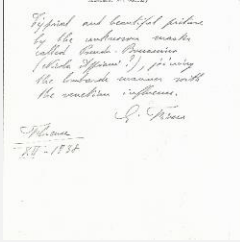 Typical and beautiful picture
by the unknown master
called Pseudo-Boccaccino
(Nicola Appiani?), joining
the lombards manner with
the venetian influence.
G. Fiocco
Firenze
XII - 1938